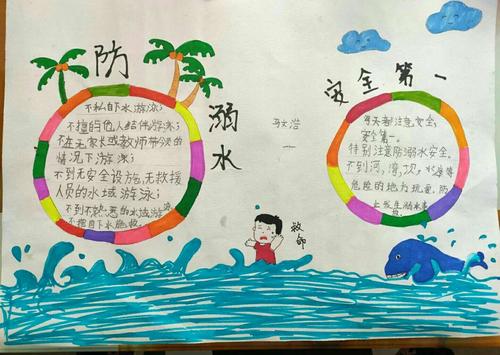 防
溺
水
不私自下水游泳;
不擅自与他人结伴游泳;
不在无家长或教师带领的
情况下游泳;
不到无安全设施,无救援
人员的水域游泳;
不到不熟悉的水域游泳
不擅自下水施救。
安全第一
每天都注意安全,
安全第一。
特别注意防溺水安全。
不到河,湾,坝,水塘等
危险的地方玩耍,防
止发生溺水事
救命